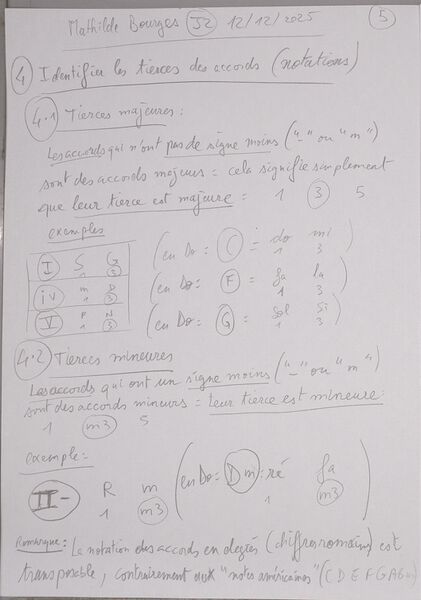 Mathilde Bourges J2 12/12/2025 5
4 Identifier les tierces des accords (notations)
4.1 Tierces majeures :
Les accords qui n'ont pas de signe moins ("-" ou "m")
sont des accords majeurs = cela signifie simplement
que leur tierce est majeure = 1 3 5
exemples
I S G (en Do : C = do mi)
1 3 1 3
IV m D (en Do = F = fa la)
1 3 1 3
V P N (en Do = G = Sol Si)
1 3 1 3
4.2 Tierces mineures
Les accords qui ont un signe moins ("-" ou "m")
sont des accords mineurs = leur tierce est mineure
1 m3 5
exemple =
II- R m (en Do = Dm = ré fa)
1 m3 1 m3
Remarque : La notation des accords en degrés (chiffres romains) est
transposable, contrairement aux "notes américaines" (C D E F G A B